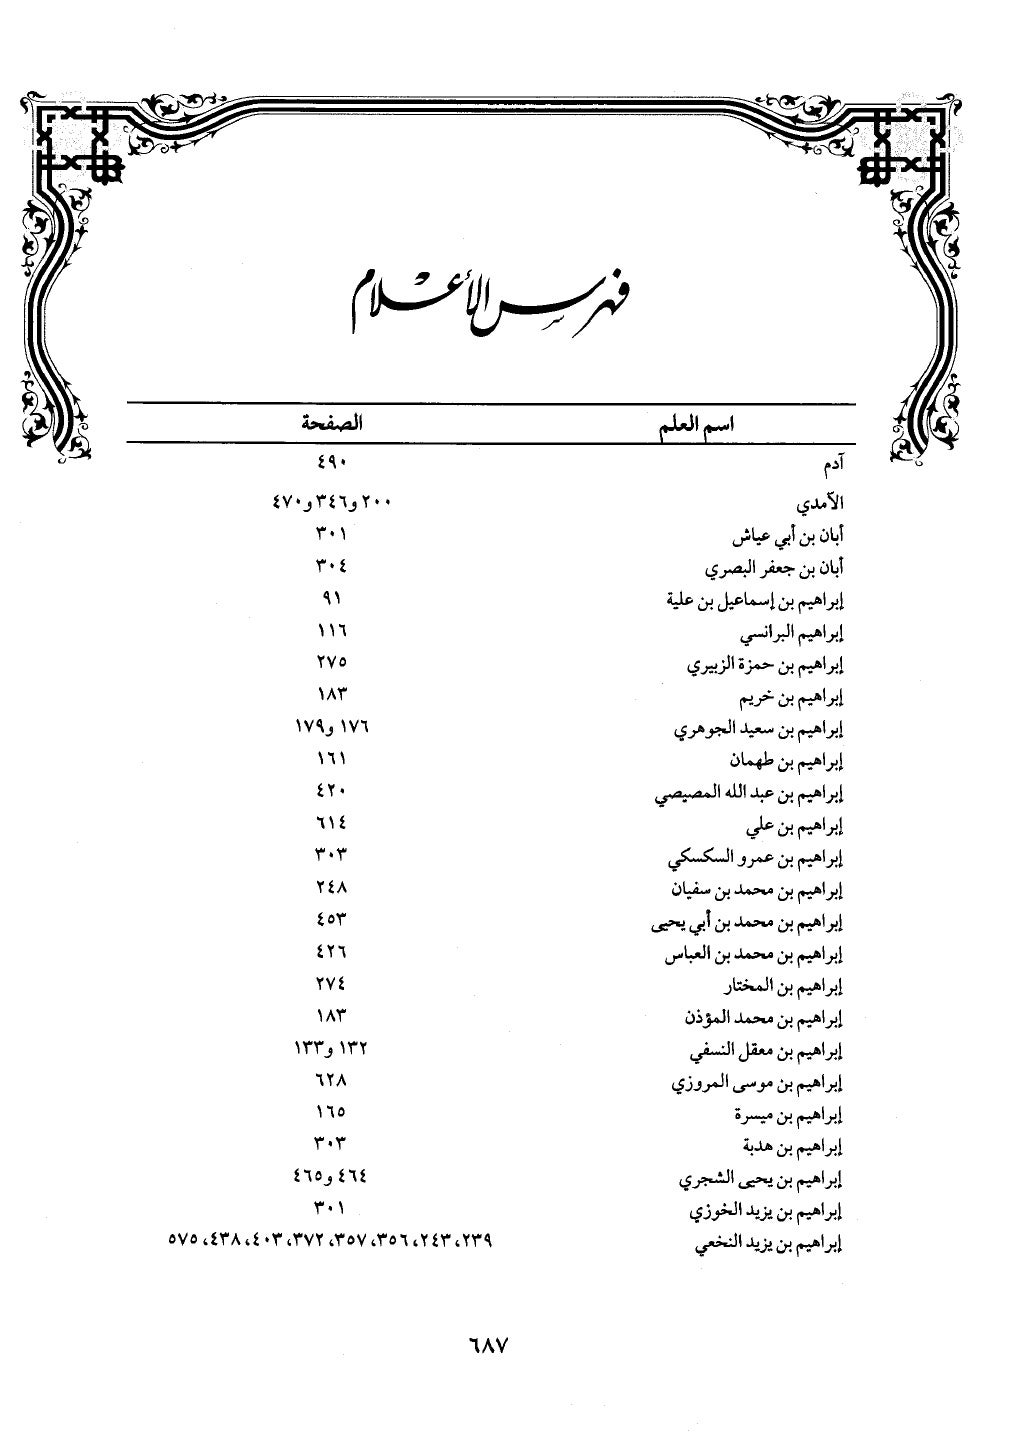 فهرس الأعلام
اسم العلم الصفحة
آدم ٤٩٠
الآمدي ٢٠٠ و٣٤٦ و٤٧٠
أبان بن أبي عياش ٣٠١
أبان بن جعفر البصري ٣٠٤
إبراهيم بن إسماعيل بن علية ٩١
إبراهيم البرانسي ١١٦
إبراهيم بن حمزة الزبيري ٢٧٥
إبراهيم بن خريم ١٨٣
إبراهيم بن سعيد الجوهري ١٧٦ و١٧٩
إبراهيم بن طهمان ١٦١
إبراهيم بن عبد الله المصيصي ٤٢٠
إبراهيم بن علي ٦١٤
إبراهيم بن عمرو السكسكي ٣٠٣
إبراهيم بن محمد بن سفيان ٢٤٨
إبراهيم بن محمد بن أبي يحيى ٤٥٣
إبراهيم بن محمد بن العباس ٤٢٦
إبراهيم بن المختار ٢٧٤
إبراهيم بن محمد المؤذن ١٨٣
إبراهيم بن معقل النسفي ١٣٢ و١٣٣
إبراهيم بن موسى المروزي ٦٢٨
إبراهيم بن ميسرة ١٦٥
إبراهيم بن هدبة ٣٠٣
إبراهيم بن يحيى الشجري ٤٦٤ و٤٦٥
إبراهيم بن يزيد الخوزي ٣٠١
إبراهيم بن يزيد النخعي ٢٣٩، ٢٤٣، ٣٥٦، ٣٥٧، ٣٧٢، ٤٠٣، ٤٣٨، ٥٧٥
٦٨٧